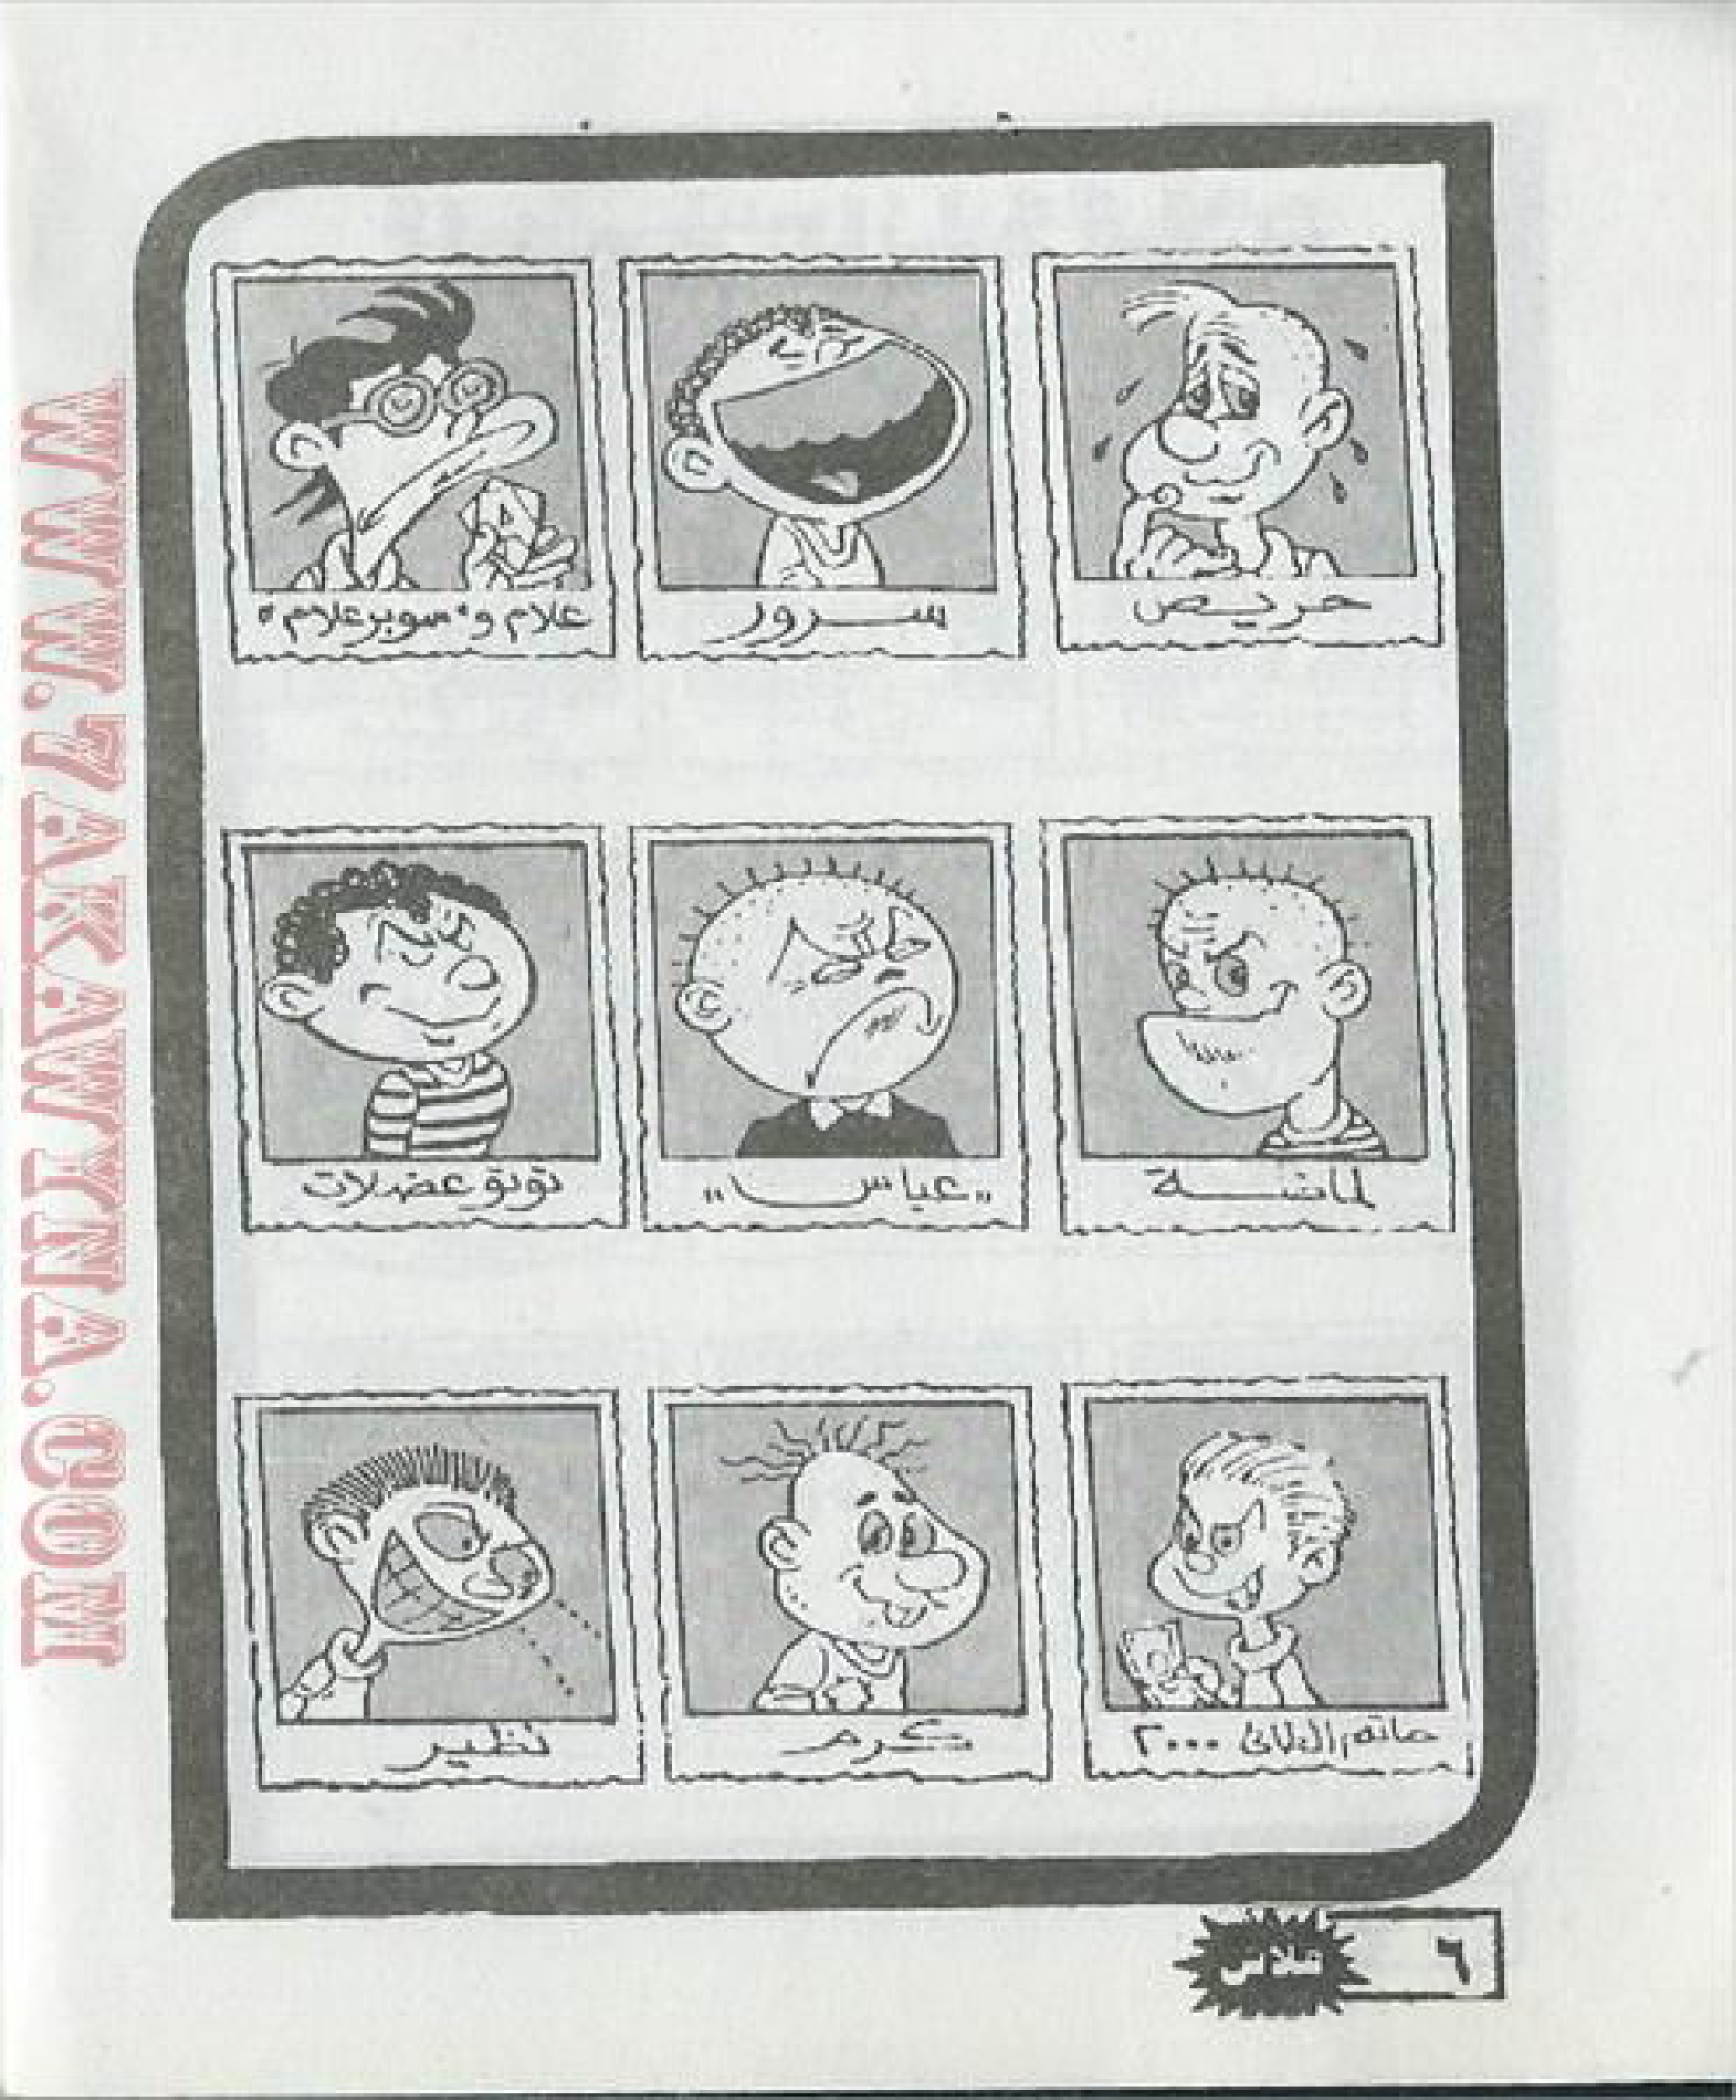 حريص
سرور
علام و "سوبر علام"
لماضة
"عباس"
توتو عضلات
حاتم الطائى ٢٠٠٠
كرم
نظير
٦
فلاش
WWW.7AKAWTINA.COM